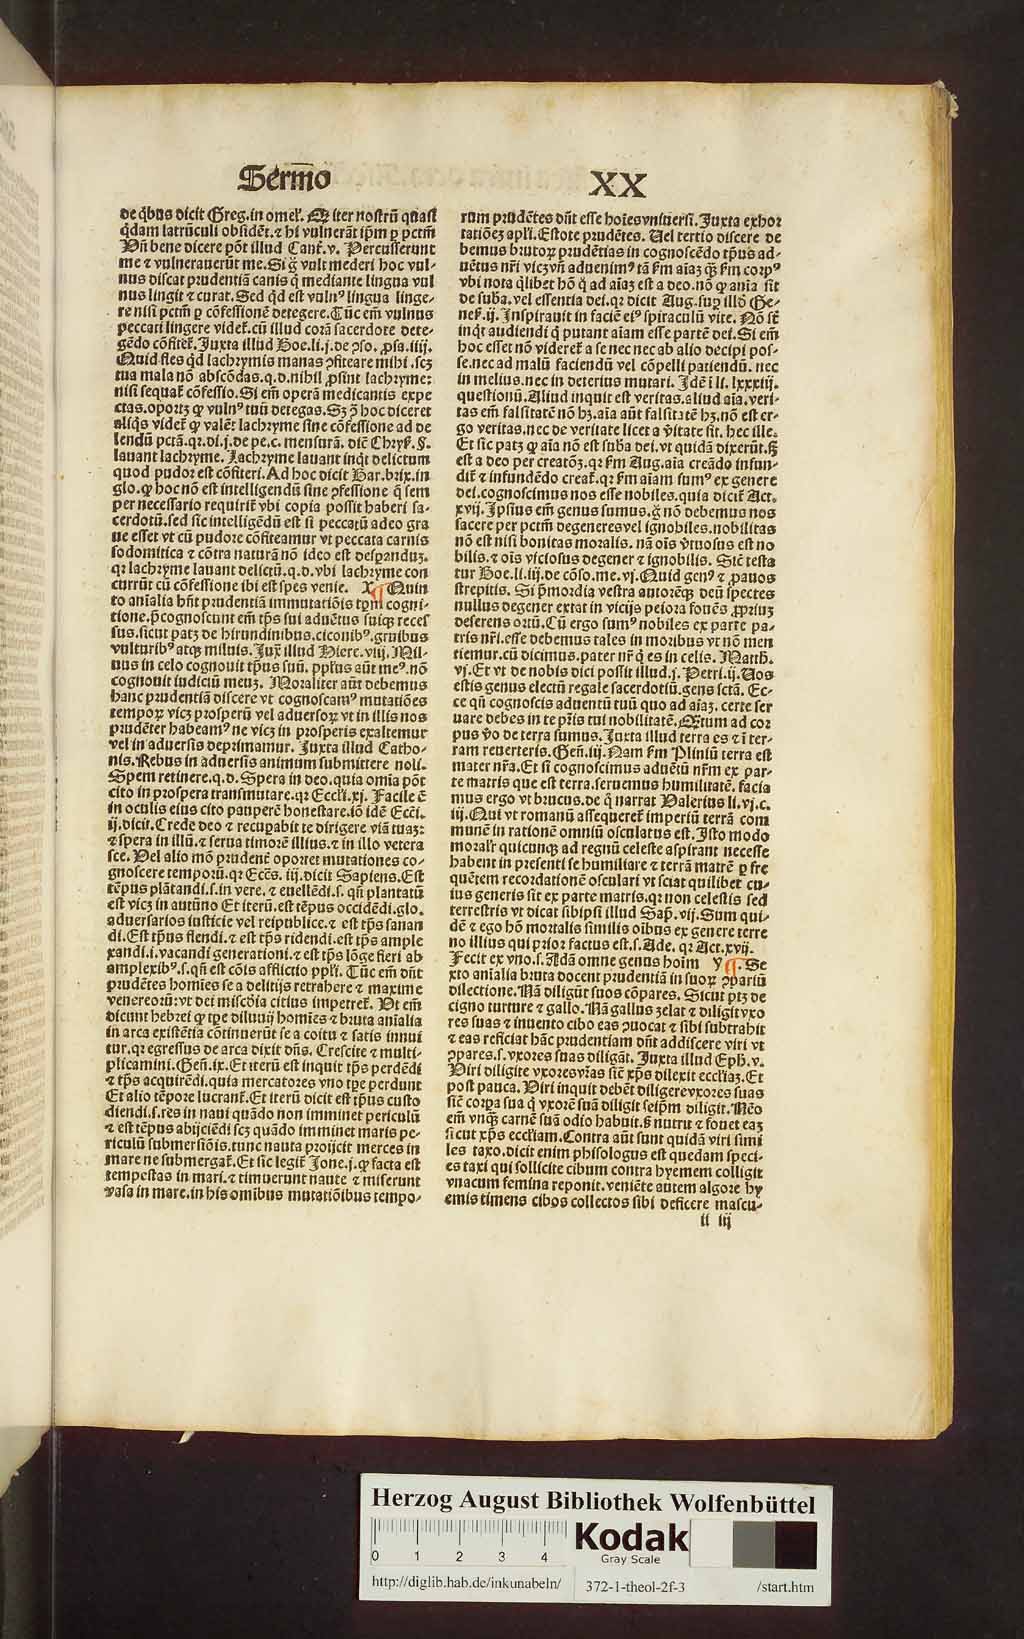 Sermo XX
de qbus dicit Greg. in omel. Q iter nostrū quasi
qdam latrūculi obsidēt. ⁊ hi vulnerāt ipm p pctm̄
Vn̄ bene dicere pōt illud Cant. v. Percusserunt
me ⁊ vulnerauerūt me. Si g̊ vult mederi hoc vul-
nus discat prudentiā canis q̄ mediante lingua vul
nus lingit ⁊ curat. Sed qd est vulnꝰ lingua linge-
re nisi pctm̄ p cōfessionē detegere. Tūc em̄ vulnus
peccati lingere videt. cū illud corā sacerdote dete-
gēdo cōfitet. Juxta illud Boe. li. j. de ꝯso. ꝓsa. iiij.
Quid fles qd lachrymis manas ꝯfiteare mihi. scꝫ
tua mala nō abscōdas. q. d. nihil ꝓsint lachryme:
nisi sequat cōfessio. Si em̄ operā medicantis expe
ctas. oportꝫ ꝙ vulnꝰ tuū detegas. Sꝫ ꝯ̄ hoc diceret
aliqs videt ꝙ valēt lachryme sine cōfessione ad de
lendū pctā. qr. di. j. de pe. c. mensurā. dic̄ Chrys. §.
lauant lachryme. Lachryme lauant inqt delictum
quod pudor est cōfiteri. Ad hoc dicit Bar. brix. in
glo. ꝙ hoc nō est intelligendū sine ꝓfessione q̄ sem
per necessario requirit vbi copia possit haberi sa-
cerdotū. sed sic intelligēdū est si peccatū adeo gra
ue esset vt cū pudore cōfiteamur vt peccata carnis
sodomitica ⁊ cōtra naturā nō ideo est desꝑanduꝫ.
qr lachryme lauant delictū. q. d. vbi lachryme con
currūt cū cōfessione ibi est spes venie. X ¶ Quin
to aīalia hn̄t prudentiā immutatiōis tꝑm cogni-
tione. p̄cognoscunt em̄ tp̄s sui aduētus suiqꝫ reces
sus. sicut patꝫ de hirundinibus. ciconibꝰ. gruibus
vulturibꝰ atqꝫ miluis. Jux illud Hiere. viij. Mil-
uus in celo cognouit tp̄us suū. pplus aūt meꝰ. nō
cognouit iudiciū meuꝫ. Moraliter aūt debemus
hanc prudentiā discere vt cognoscamꝰ mutatiōes
tempoꝝ vicꝫ prosperū vel aduersoꝝ vt in illis nos
prudēter habeamꝰ ne vicꝫ in prosperis exaltemur
vel in aduersis deprimamur. Juxta illud Catho-
nis. Rebus in aduersis animum submittere noli.
Spem retinere. q. d. Spera in deo. quia omīa pōt
cito in prospera transmutare. qr Eccli. xj. Facile ē
in oculis eius cito pauperē honestare. iō idē Ecci.
ij. dicit. Crede deo ⁊ recuꝑabit te dirigere viā tuaꝫ:
⁊ spera in illū. ⁊ serua timorē illius. ⁊ in illo vetera
sce. Vel alio mō prudenē oporꝫet mutationes co-
gnoscere temporū. qr Ecc̄s. iij. dicit Sapiens. Est
tēpus plātandi. s. in vere. ⁊ euellēdi. s. qn̄ plantatū
est vicꝫ in autūno Et iterū. est tēpus occidēdi. glo.
aduersarios iusticie vel reipublice. ⁊ est tp̄s sanan
di. Est tp̄us flendi. ⁊ est tp̄s ridendi. est tp̄s ample
xandi. i. vacandi generationi. ⁊ est tp̄s lōge fieri ab
amplexibꝰ. s. qn̄ est cōis afflictio ppli. Tūc em̄ dn̄t
prudētes homīes se a delitijs retrahere ⁊ maxime
venereorū: vt dei miscdia citius impetret. Vt em̄
dicunt hebrei ꝙ tꝑe diluuij homīes ⁊ bruta anīalia
in arca existētia cōtinuerūt se a coitu ⁊ satis innui
tur. qr egressus de arca dixit dn̄s. Crescite ⁊ multi-
plicamini. Gen̄. ix. Et iterū est inquit tp̄s perdēdi
⁊ tp̄s acquirēdi. quia mercatores vno tꝑe perdunt
Et alio tēpore lucrant. Et iterū dicit est tp̄us custo
diendi. s. res in naui quādo non imminet periculū
⁊ est tēpus abijciēdi scꝫ quādo imminet maris pe-
riculū submersiōis. tunc nauta proijcit merces in
mare ne submergat. Et sic legit Jone. j. ꝙ facta est
tempestas in mari. ⁊ timuerunt naute ⁊ miserunt
vasa in mare. in his omībus mutatiōibus tempo-
rum prudētes dn̄t esse hoīes vniuersi. Juxta exhor
tatiōeꝫ apli. Estote prudētes. Uel tertio discere de
bemus brutoꝝ prudētias in cognoscēdo tp̄us ad-
uētus nr̄i vicꝫ vn̄ aduenimꝰ tā fm aīaꝫ qꝫ fm corpꝰ
vbi nota qlibet hō q̄ ad aīaꝫ est a deo. nō ꝙ anīa sit
de subā. vel essentia dei. qr dicit Aug. suꝑ illō Ge-
nes. ij. Inspirauit in faciē eiꝰ spiraculū vite. Nō sūt
inqt audiendi q̄ putant aīam esse partē dei. Si em̄
hoc esset nō videret a se nec nec ab alio decipi pos-
se. nec ad malū faciendū vel cōpelli patiendū. nec
in melius. nec in deterius mutari. Idē ī li. lxxxiij.
questionū. Aliud inquit est veritas. aliud aīa. veri-
tas em̄ falsitatē nō hꝫ. aīa aūt falsitatē hꝫ. nō est er-
go veritas. nec de veritate licet a v̄itate sit. hec ille.
Et sic patꝫ ꝙ aīa nō est subā dei. vt quidā dixerūt. s̄
est a deo per creatōꝫ. qr fm Aug. aīa creādo infun-
dit ⁊ infundēdo creat. qr fm aīam sumꝰ ex genere
dei. cognoscimus nos esse nobiles. quia dicit Act.
xvij. Ipsius em̄ genus sumus. g̊ nō debemus nos
facere per pctm̄ degeneres vel ignobiles. nobilitas
nō est nisi bonitas moralis. nā oīs v̄tuosus est no
bilis. ⁊ oīs viciosus degener ⁊ ignobilis. Sic̄ testa
tur Boe. li. iij. de cōso. me. vj. Quid genꝰ ⁊ ꝓauos
strepitis. Si p̄mordia vestra autorēqꝫ deū spectes
nullus degener extat in vicijs peiora fouēs ꝓpriuꝫ
deserens ortū. Cū ergo sumꝰ nobiles ex parte pa-
tris nr̄i. esse debemus tales in moribus vt nō men
tiemur. cū dicimus. pater nr̄ q̄ es in celis. Matth.
vj. Et vt de nobis dici possit illud. j. Petri. ij. Vos
estis genus electū regale sacerdotiū. gens sctā. Ec-
ce qn̄ cognoscis aduentū tuū quo ad aīaꝫ. certe ser
uare debes in te pr̄is tui nobilitatē. Qtum ad cor
pus v̄o de terra sumus. Juxta illud terra es ⁊ ī ter-
ram reuerteris. Gen̄. iij. Nam fm Pliniū terra est
mater nr̄a. Et si cognoscimus aduētū nr̄m ex par-
te matris que est terra. seruemus humilitatē. facia
mus ergo vt brucus. de q̄ narrat Valerius li. vj. c.
iij. Qui vt romanū assequeret imperiū terrā com
munē in rationē omniū osculatus est. Isto modo
moralr̄ quicunqꝫ ad regnū celeste aspirant necesse
habent in presenti se humiliare ⁊ terrā matrē p fre
quētem recordationē osculari vt sciat quilibet cu-
ius generis sit ex parte matris. qr non celestis sed
terrestris vt dicat sibipsi illud Sap. vij. Sum qui-
dē ⁊ ego hō mortalis similis oībus ex genere terre
no illius qui prior factus est. s. Ade. qr Act. xvij.
Fecit ex vno. s. Adā omne genus hoīm y ¶. Se
xto anīalia bruta docent prudentiā in suoꝝ ꝯpariū
dilectione. Nā diligūt suos cōpares. Sicut ptꝫ de
cigno turture ⁊ gallo. Nā gallus ꝫelat ⁊ diligit vxo
res suas ⁊ inuento cibo eas ꝯuocat ⁊ sibi subtrahit
⁊ eas reficiat hāc prudentiam dn̄t addiscere viri vt
ꝯpares. s. vxores suas diligāt. Juxta illud Eph. v.
Viri diligite vxores vr̄as sic̄ xp̄s dilexit eccliaꝫ. Et
post pauca. Viri inquit debēt diligere vxores suas
sic̄ corpa sua q̄ vxorē suā diligit seipm̄ diligit. Nēo
em̄ vnqꝫ carnē suā odio habuit. s̄ nutrit ⁊ fouet eaꝫ
sicut xp̄s eccliam. Contra aūt sunt quidā viri simi
les taxo. dicit enim phisologus est quedam speci-
es taxi qui sollicite cibum contra hyemem colligit
vnacum femina reponit. veniēte autem algore hy
emis timens cibos collectos sibi deficere mascu-
ii iij
Herzog August Bibliothek Wolfenbüttel
0 1 2 3 4
Kodak
Gray Scale
http://diglib.hab.de/inkunabeln/ 372-1-theol-2f-3 /start.htm